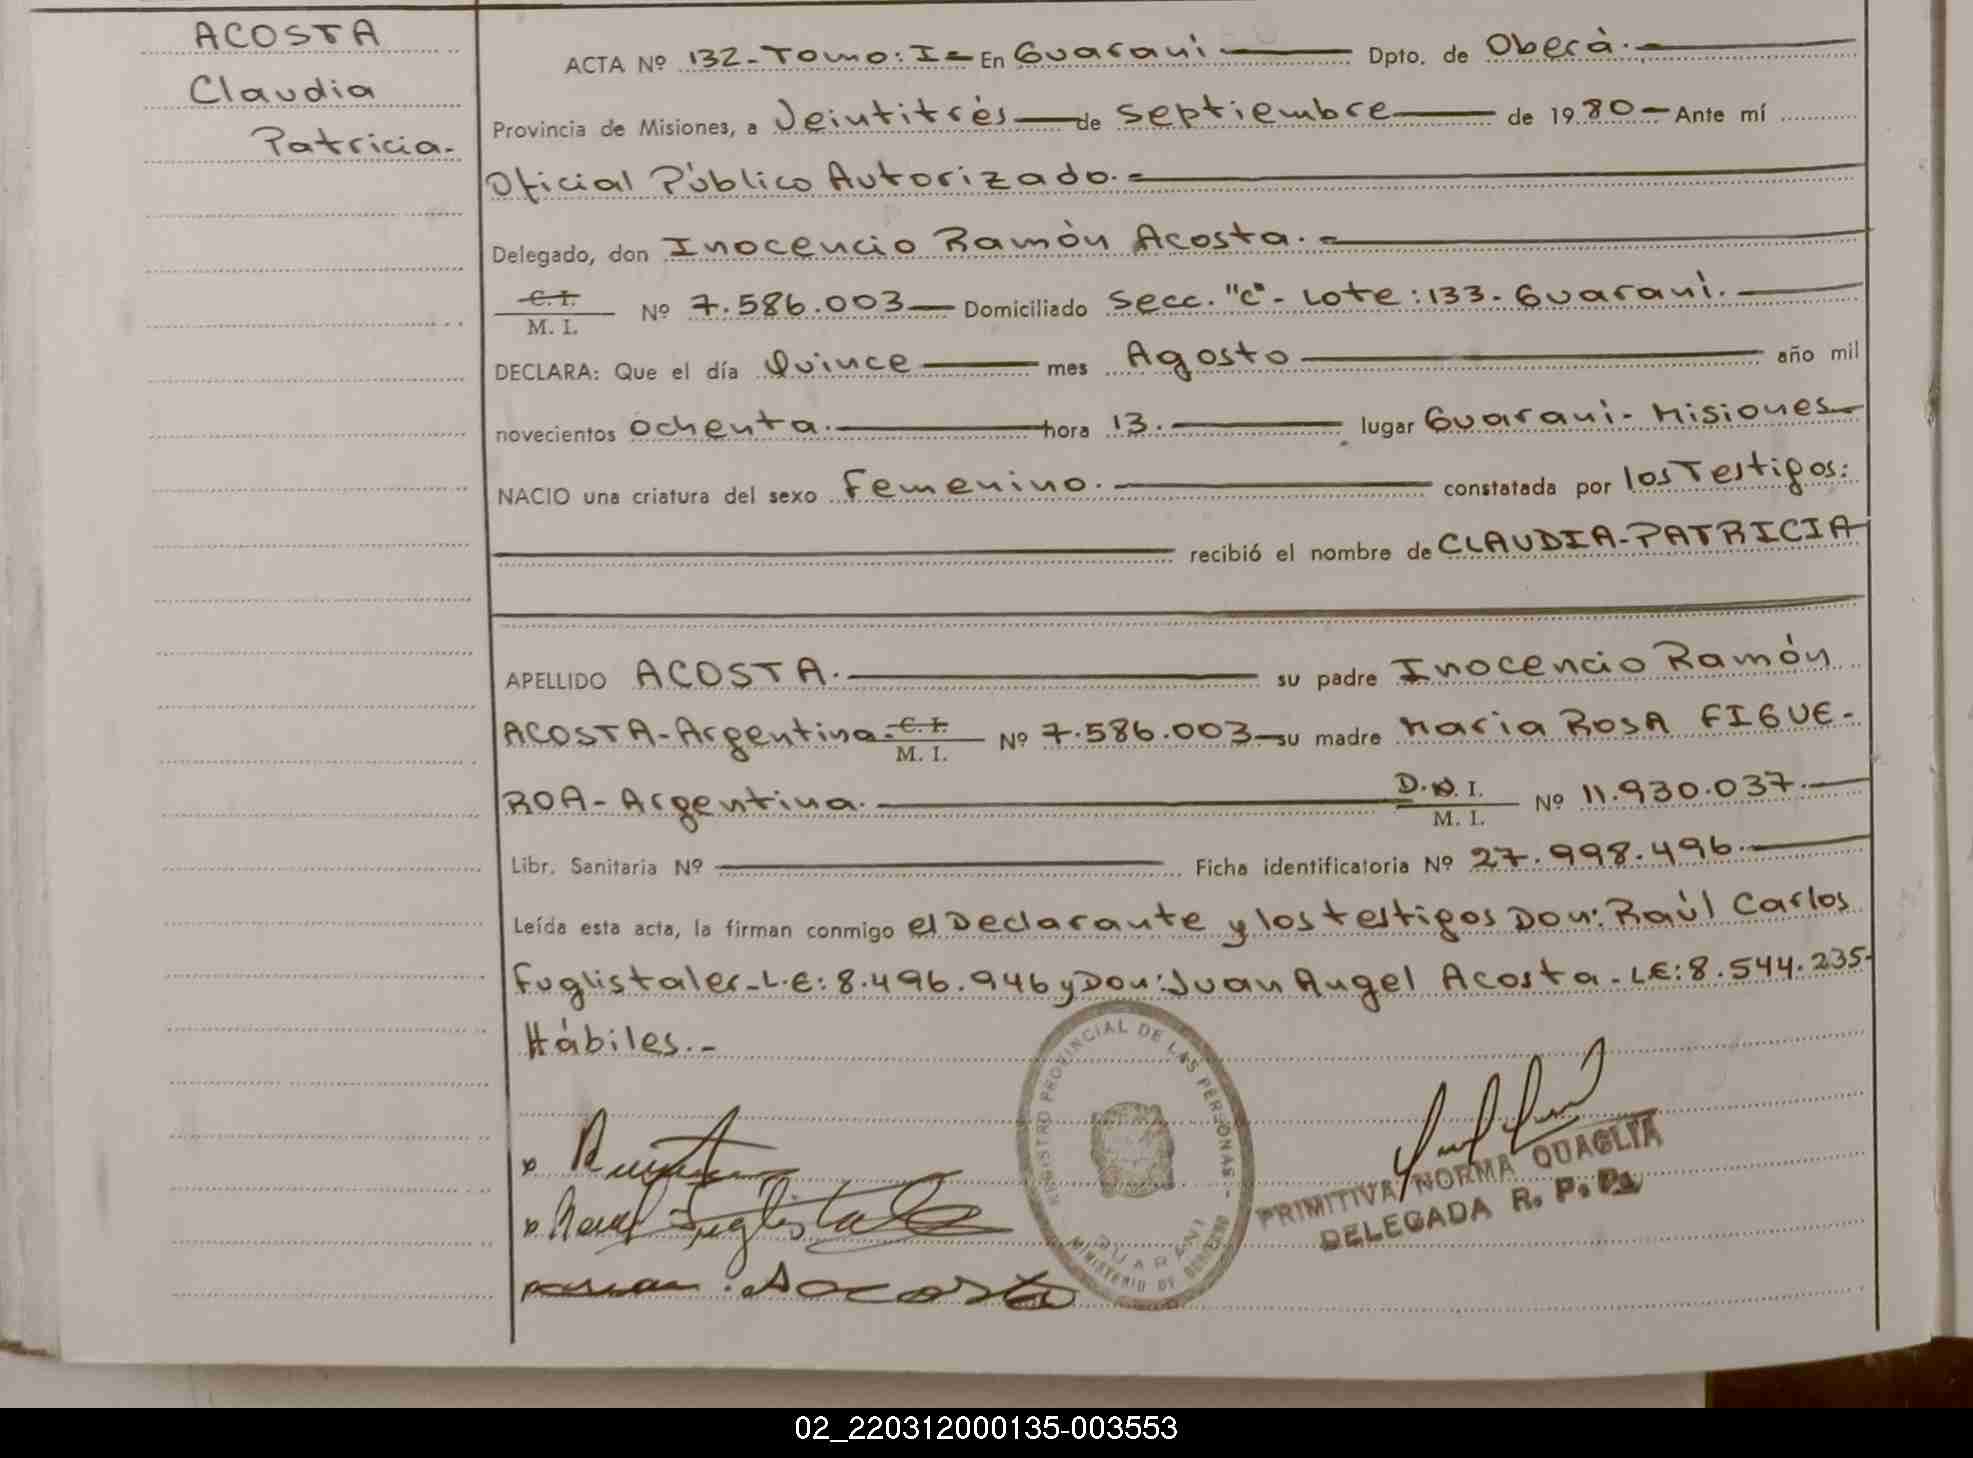 ACOSTA
Claudia
Patricia.-
ACTA Nº 132-Tomo: I- En Guaraní Dpto. de Oberá.-
Provincia de Misiones, a Veintitrés de Septiembre de 1980- Ante mí
Oficial Público Autorizado.-
Delegado, don Inocencio Ramón Acosta.-
C. I.
M. I. Nº 7.586.003 Domiciliado Secc. "C"- Lote: 133- Guaraní.
DECLARA: Que el día Quince mes Agosto año mil
novecientos Ochenta. hora 13. lugar Guaraní- Misiones-
NACIO una criatura del sexo Femenino. constatada por los Testigos:
recibió el nombre de CLAUDIA-PATRICIA
APELLIDO ACOSTA. su padre Inocencio Ramón
ACOSTA-Argentina. C. I. M. I. Nº 7.586.003 su madre María ROSA FIGUE-
ROA-Argentina. D.N. I. M. I. Nº 11.930.037.
Libr. Sanitaria Nº Ficha identificatoria Nº 27.998.496.
Leída esta acta, la firman conmigo el Declarante y los testigos Don: Raúl Carlos
Fuglistaler-L.E: 8.496.946 y Don: Juan Angel Acosta-LE: 8.544.235-
Hábiles.-
REGISTRO PROVINCIAL DE LAS PERSONAS -
GUARANI
MINISTERIO DE GOBIERNO
PRIMITIVA NORMA QUAGLIA
DELEGADA R. P. P.
Raul Fuglistaler
Acosta
02_220312000135-003553